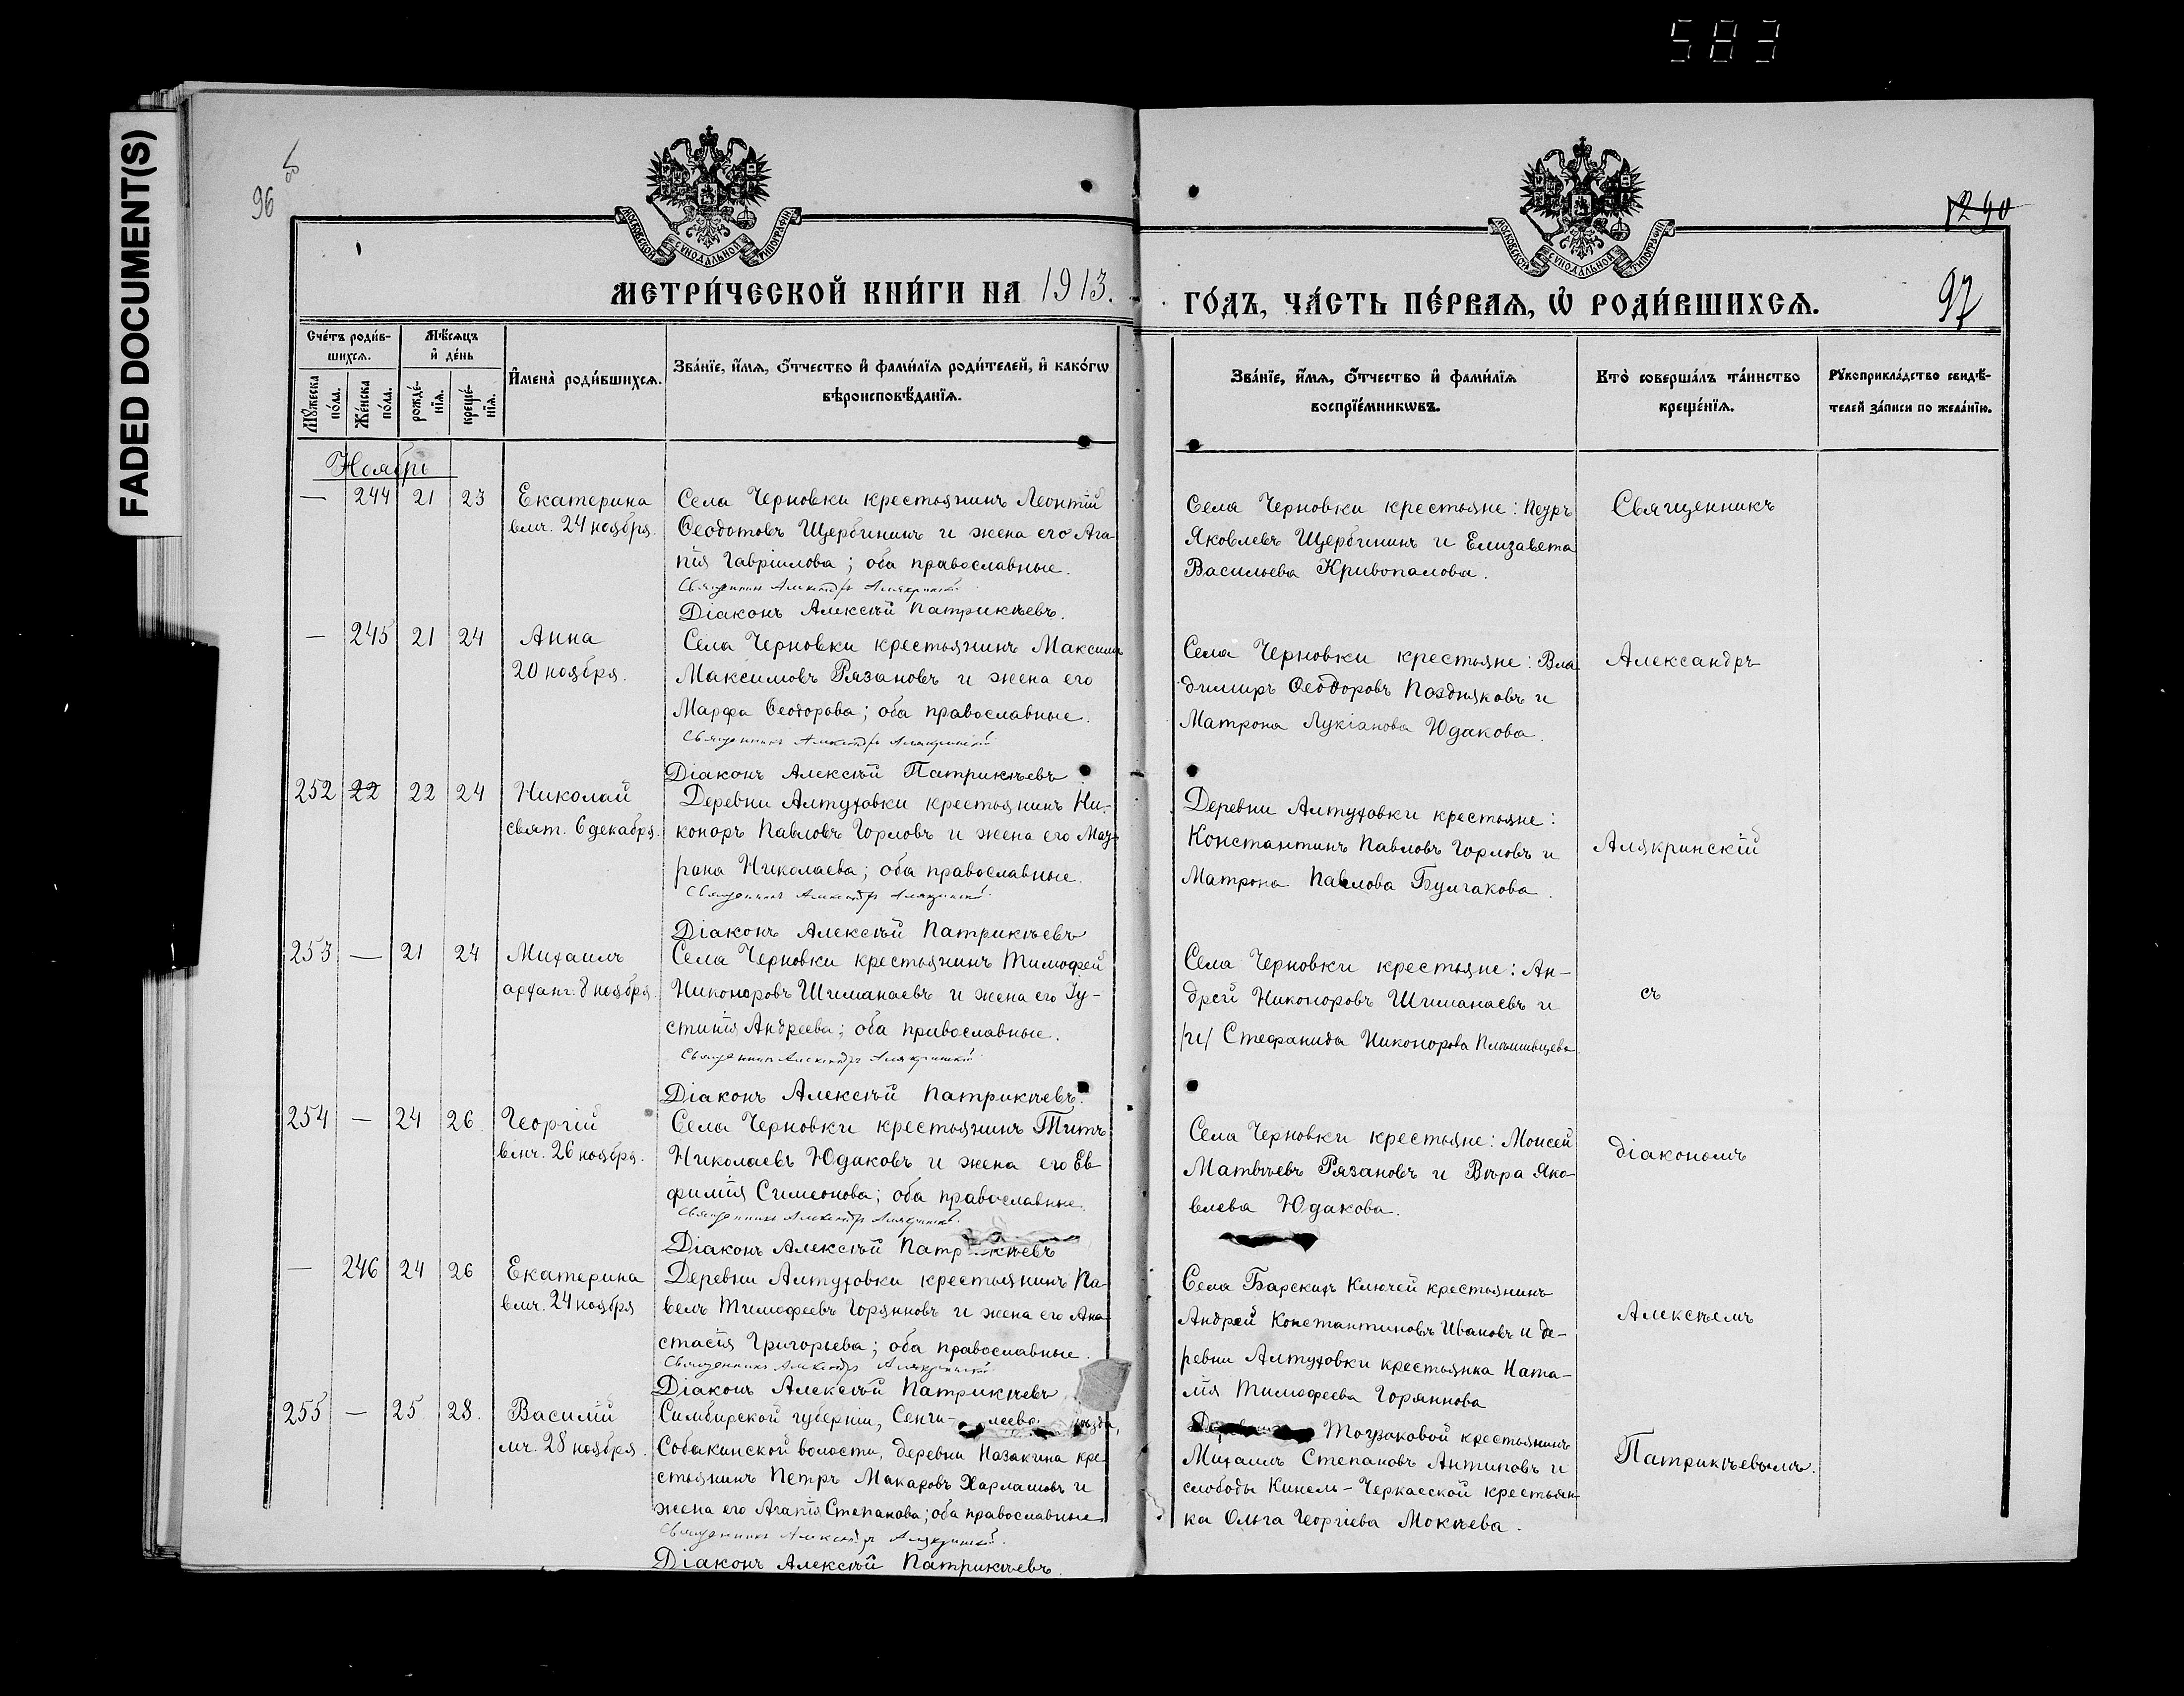 583
FADED DOCUMENT(S)
96
1290
97
МОСКОВСКОЙ СѴНОДАЛЬНОЙ ТИПОГРАФІИ
МОСКОВСКОЙ СѴНОДАЛЬНОЙ ТИПОГРАФІИ
МЕТРИ́ЧЕСКОЙ КНИ́ГИ НА 1913.
ГО́ДЪ, ЧА́СТЬ ПЕ́РВАѦ, Ѡ҆ РОДИ́ВШИХСѦ.
Сче́тъ роди́в-
шихсѧ.
Мꙋ́жеска
по́ла.
Же́нска
по́ла.
Мѣ́сѧцъ
и҆ де́нь
рожде́-
нїѧ.
креще́-
нїѧ.
И҆мена̀ роди́вшихсѧ.
Зва́нїе, и҆́мѧ, ѻ҆́тчество и҆ фами́лїѧ роди́телей, и҆ како́гѡ
вѣроисповѣ́данїѧ.
Зва́нїе, и҆́мѧ, ѻ҆́тчество и҆ фами́лїѧ
воспрїе́мникѡвъ.
Кто̀ соверша́лъ та́инство
креще́нїѧ.
Рꙋкоприкла́дство свидѣ́-
телей за́писи по жела́нїю.
Ноябрь
— 244 21 23
Екатерина
влч. 24 ноября.
Села Черновки крестьянинъ Леонтій
Ѳеодотовъ Щербининъ и жена его Ага-
пія Гавріилова; оба православные.
Священникъ Александръ Алякринскій
Діаконъ Алексѣй Патрикѣевъ.
Села Черновки крестьяне: Петръ
Яковлевъ Щербининъ и Елизавета
Васильева Кривопалова.
Священникъ
— 245 21 24
Анна
20 ноября.
Села Черновки крестьянинъ Максимъ
Максимовъ Рязановъ и жена его
Марфа Ѳеодорова; оба православные.
Священникъ Александръ Алякринскій
Діаконъ Алексѣй Патрикѣевъ
Села Черновки крестьяне: Вла
димиръ Ѳеодоровъ Поздняковъ и
Матрона Лукіанова Юдакова.
Александръ
252 22 22 24
Николай
свят. 6 декабря.
Деревни Алтуховки крестьянинъ Ни-
коноръ Павловъ Горловъ и жена его Мат-
рона Николаева; оба православные.
Священникъ Александръ Алякринскій
Діаконъ Алексѣй Патрикѣевъ
Деревни Алтуховки крестьяне:
Константинъ Павловъ Горловъ и
Матрона Павлова Булгакова.
Алякринскій
253 — 21 24
Михаилъ
арханг. 8 ноября.
Села Черновки крестьянинъ Тимофей
Никоноровъ Шиманаевъ и жена его Іу-
стинія Андреева; оба православные.
Священникъ Александръ Алякринскій
Діаконъ Алексѣй Патрикѣевъ.
Села Черновки крестьяне: Ан-
дрей Никоноровъ Шиманаевъ и
/и/ Стефанида Никонорова
съ
254 — 24 26
Георгій
влч. 26 ноября.
Села Черновки крестьянинъ Титъ
Николаевъ Юдаковъ и жена его Ев
фимія Симеонова; оба православные.
Священникъ Александръ Алякринскій
Діаконъ Алексѣй Патрикѣевъ
Села Черновки крестьяне: Моисей
Матвѣевъ Рязановъ и Вѣра Яко-
влева Юдакова.
діакономъ
— 246 24 26
Екатерина
влч. 24 ноября
Деревни Алтуховки крестьянинъ Па-
велъ Тимофеевъ Горяиновъ и жена его Ана
стасія Григорьева; оба православные.
Священникъ Александръ Алякринскій
Діаконъ Алексѣй Патрикѣевъ
Села Барскихъ Ключей крестьянинъ
Андрей Константиновъ Ивановъ и де-
ревни Алтуховки крестьянка Ната-
лія Тимофеева Горяинова
Алексѣемъ
255 — 25 28.
Василій
мч. 28 ноября.
Симбирской губерніи, Сенги-леев. уѣзда,
Собакинской волости, деревни Назакина кре
стьянинъ Петръ Макаровъ Харламовъ и
жена его Агапія Степанова; оба православные
Священникъ Александръ Алякринскій
Діаконъ Алексѣй Патрикѣевъ.
Тогузаковой крестьянинъ
Михаилъ Степановъ Антиповъ и
слободы Кинель-Черкасской крестьян-
ка Ольга Георгіева Мокѣева.
Патрикѣевымъ.